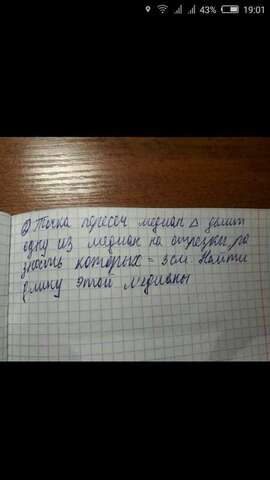 43% 19:01
2) Точка пересеч медиан △ делит
одну из медиан на отрезки, ра
зность которых = 3 см Найти
длину этой медианы